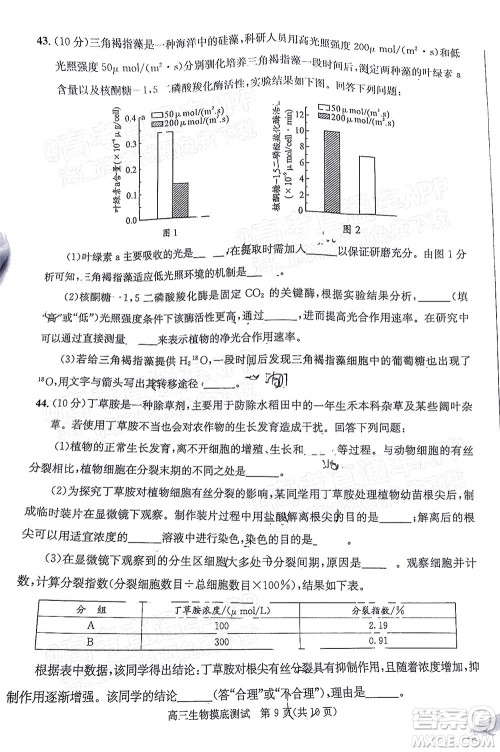 43.(10分)三角褐指藻是一种海洋中的硅藻,科研人员用高光照强度200μmol/(m²·s)和低
光照强度50μmol/(m²·s)分别驯化培养三角褐指藻一段时间后,测定两种藻的叶绿素a含
量以及核酮糖—1,5二磷酸羧化酶活性,实验结果如图。回答下列问题:
50μmol/(m².s)
200μmol/(m².s)
叶绿素a含量(×10⁻⁶μg/cell)
0.4
0.3
0.2
0.1
0.0
图1
50μmol/(m².s)
200μmol/(m².s)
12
10
8
6
4
2
0
图2
(1)叶绿素a主要吸收的光是____,在提取时需加入____以保证研磨充分。由图1分
析可知,三角褐指藻适应低光照环境的机制是____。
(2)核酮糖—1,5二磷酸羧化酶是固定CO₂的关键酶,根据实验结果分析,____(填
“高”或“低”)光照强度条件下该酶活性更大,进而提高光合作用速率。在研究中
可以通过直接测量____来表示植物的净光合作用速率。
(3)若给三角褐指藻提供H₂¹⁸O,一段时间后发现三角褐指藻细胞中的葡萄糖也出现了
¹⁸O,请写出其转移途径____。
44.(10分)丁草胺是一种除草剂,主要用于防除水稻田中的一年生禾本科杂草及某些阔叶杂
草。使用丁草胺不当会对农作物的生长发育造成干扰。回答下列问题:
(1)植物的正常生长发育,离不开细胞的增殖、生长和____等过程。与动物细胞的有丝
分裂相比,植物细胞在分裂末期的不同之处是____。
(2)为探究丁草胺对植物细胞有丝分裂的影响,某同学用丁草胺处理植物幼苗根尖后,制
成临时装片在显微镜下观察。制作装片过程中,需要对解离后的根尖进行____,再将根
尖用适宜浓度的____溶液中进行染色,其原因是____。
(3)在显微镜下观察到的分生区细胞大多处于分裂间期,原因是____。观察、统计细胞
数,计算分裂指数(分裂细胞数/细胞总数×100%),结果如下表:
分 组 丁草胺浓度/(μmol/L) 分裂指数/(%)
A 100 2.19
B 300 0.91
根据表中数据,该同学得出结论:丁草胺对根尖分生区细胞分裂有抑制作用,且抑制
作用逐渐增强。该同学的结论____(答“合理”或“不合理”),原因是____。
高三生物摸底测试 第9页(共10页)